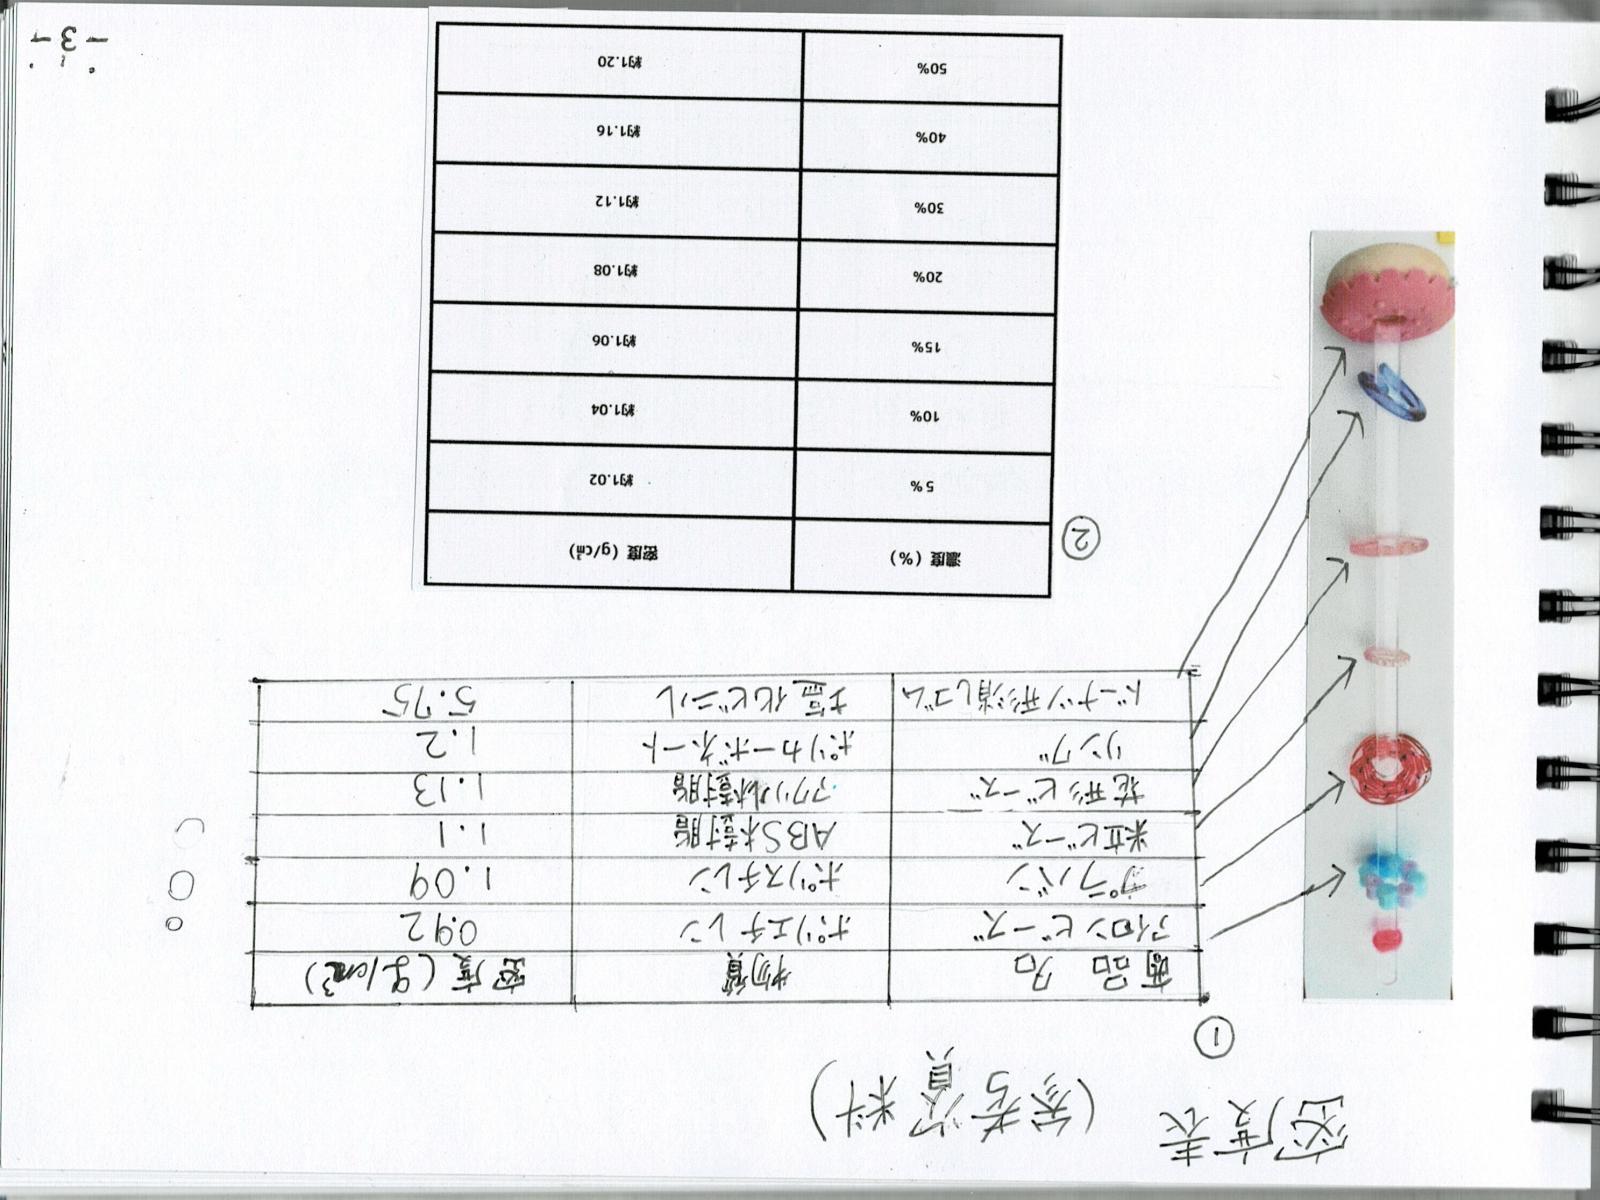 密度表 (参考資料)
①
商品名 物質 密度(g/cm³)
アイロンビーズ ポリエチレン 0.92
プラバン ポリスチレン 1.09
米立ビーズ ABS樹脂 1.1
花形ビーズ アクリル樹脂 1.13
リング ポリカーボネート 1.2
ドーナツ形消しゴム 塩化ビニル 5.75
②
濃度(%) 密度(g/cm³)
5% 約1.02
10% 約1.04
15% 約1.06
20% 約1.08
30% 約1.12
40% 約1.16
50% 約1.20
-3-